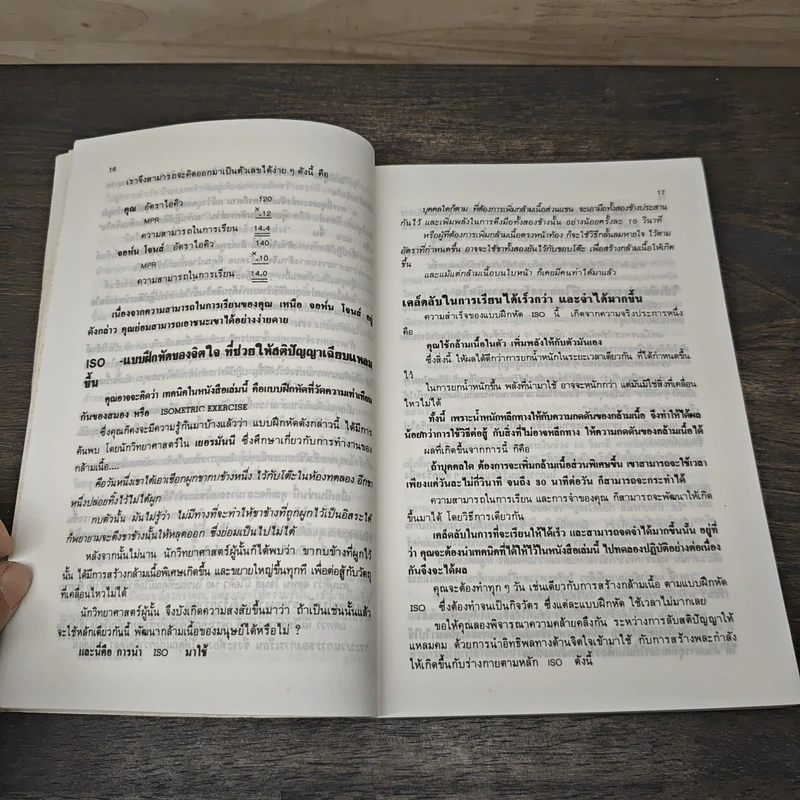 16
เราจึงสามารถจะคิดออกมาเป็นตัวเลขได้ง่าย ๆ ดังนี้ คือ
คุณ อัตราไอคิว 120
×
MPR .12
ความสามารถในการเรียน 14.4
จอห์น โจนส์ อัตราไอคิว 140
×
MPR .10
ความสามารถในการเรียน 14.0
เนื่องจากความสามารถในการเรียนของคุณ เหนือ จอห์น โจนส์ อยู่
ดังกล่าว คุณย่อมสามารถเอาชนะเขาได้อย่างง่ายดาย
ISO -แบบฝึกหัดของจิตใจ ที่ช่วยให้สติปัญญาเฉียบแหลม
ขึ้น
คุณอาจจะคิดว่า เทคนิคในหนังสือเล่มนี้ คือแบบฝึกหัดที่วัดความเท่าเทียม
กันของสมอง หรือ ISOMETRIC EXERCISE
ซึ่งคุณก็คงจะมีความรู้กันมาบ้างแล้วว่า แบบฝึกหัดดังกล่าวนี้ ได้มีการ
ค้นพบ โดยนักวิทยาศาสตร์ใน เยอรมานี ซึ่งศึกษาเกี่ยวกับการทำงานของ
กล้ามเนื้อ....
คือวันหนึ่งเขาได้เอาเชือกผูกขากบข้างหนึ่ง ไว้กับโต๊ะในห้องทดลอง อีกขา
หนึ่งปล่อยทิ้งไว้ไม่ได้ผูก
กบตัวนั้น มันไม่รู้ว่า ไม่มีทางที่จะทำให้ขาข้างที่ถูกผูกไว้เป็นอิสระได้
ก็พยายามจะดึงขาข้างนั้นให้หลุดออก ซึ่งย่อมเป็นไปไม่ได้
หลังจากนั้นไม่นาน นักวิทยาศาสตร์ผู้นั้นก็ได้พบว่า ขากบข้างที่ผูกไว้
นั้น ได้มีการสร้างกล้ามเนื้อพิเศษเกิดขึ้น และขยายใหญ่ขึ้นทุกที เพื่อต่อสู้กับวัตถุ
ที่เคลื่อนไหวไม่ได้
นักวิทยาศาสตร์ผู้นั้น จึงบังเกิดความสงสัยขึ้นมาว่า ถ้าเป็นเช่นนั้นแล้ว
จะใช้หลักเดียวกันนี้ พัฒนากล้ามเนื้อของมนุษย์ได้หรือไม่ ?
และนี่คือ การนำ ISO มาใช้
17
บุคคลใดก็ตาม ที่ต้องการเพิ่มกล้ามเนื้อส่วนแขน จะเอามือทั้งสองข้างประสาน
กันไว้ และเพิ่มพลังในการดึงมือทั้งสองข้างนั้น อย่างน้อยครั้งละ 10 วินาที
หรือผู้ที่ต้องการเพิ่มกล้ามเนื้อตรงหน้าท้อง ก็จะใช้วิธีกลั้นลมหายใจ ไว้ตาม
อัตราที่กำหนดขึ้น อาจจะใช้ขาทั้งสองยันไว้กับขอบโต๊ะ เพื่อสร้างกล้ามเนื้อให้เกิด
ขึ้น
และแม้แต่กล้ามเนื้อบนใบหน้า ก็เคยมีคนทำได้มาแล้ว
เคล็ดลับในการเรียนได้เร็วกว่า และจำได้มากขึ้น
ความสำเร็จของแบบฝึกหัด ISO นี้ เกิดจากความจริงประการหนึ่ง
คือ
คุณใช้กล้ามเนื้อในตัว เพิ่มพลังให้กับตัวมันเอง
ซึ่งสิ่งนี้ ให้ผลได้ดีกว่าการยกน้ำหนักในระยะเวลาเดียวกัน ที่ได้กำหนดขึ้น
ไว้
ในการยกน้ำหนักขึ้น พลังที่นำมาใช้ อาจจะหนักกว่า แต่มันมิใช่สิ่งที่เคลื่อน
ไหวไม่ได้
ทั้งนี้ เพราะน้ำหนักหลีกทางให้กับความกดดันของกล้ามเนื้อ จึงทำให้ได้ผล
น้อยกว่าการใช้วิธีต่อสู้ กับสิ่งที่ไม่อาจหลีกทาง ให้ความกดดันของกล้ามเนื้อได้
ผลที่เกิดขึ้นจากการนี้ ก็คือ
ถ้าบุคคลใด ต้องการจะเพิ่มกล้ามเนื้อส่วนพิเศษขึ้น เขาสามารถจะใช้เวลา
เพียงแค่วันละไม่กี่วินาที จนถึง 30 นาทีต่อวัน ก็สามารถจะกระทำได้
ความสามารถในการเรียน และการจำของคุณ ก็สามารถจะพัฒนาให้เกิด
ขึ้นมาได้ โดยวิธีการเดียวกัน
เคล็ดลับในการที่จะเรียนให้ได้เร็ว และสามารถจดจำได้มากขึ้นนั้น อยู่ที่
ว่า คุณจะต้องนำเทคนิคที่ได้ให้ไว้ในหนังสือเล่มนี้ ไปทดลองปฏิบัติอย่างต่อเนื่อง
กันจึงจะได้ผล
คุณจะต้องทำทุก ๆ วัน เช่นเดียวกับการสร้างกล้ามเนื้อ ตามแบบฝึกหัด
ISO ซึ่งต้องทำจนเป็นกิจวัตร ซึ่งแต่ละแบบฝึกหัด ใช้เวลาไม่มากเลย
ขอให้คุณลองพิจารณาความคล้ายคลึงกัน ระหว่างการลับสติปัญญาให้
แหลมคม ด้วยการนำอิทธิพลทางด้านจิตใจเข้ามาใช้ กับการสร้างพละกำลัง
ให้เกิดขึ้นกับร่างกายตามหลัก ISO ดังนี้